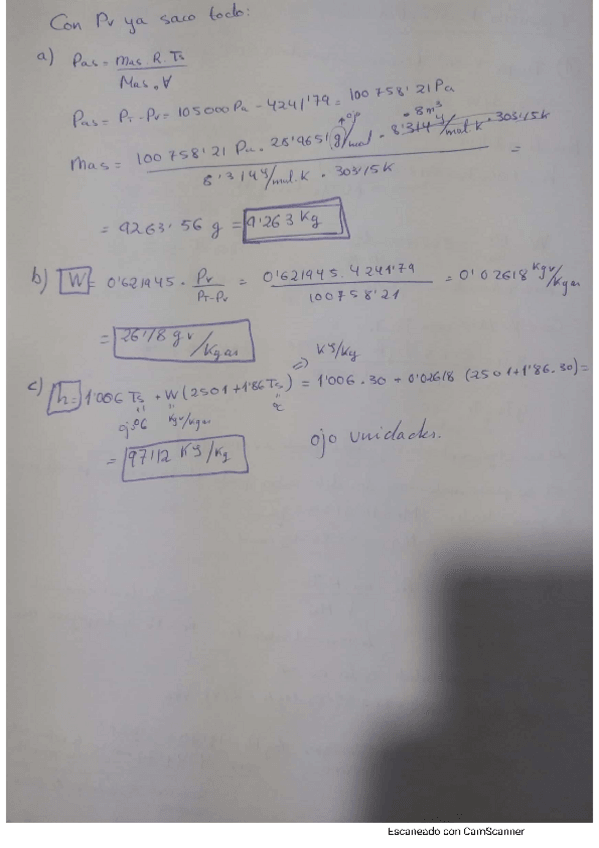 Con Pv ya saco todo:
a) Pas = mas. R. Ts / Mas. V
Pas = PT - Pv = 105000 Pa - 4241'79 = 100 758'21 Pa
mas = 100 758'21 Pa . 28'9651 g/mol . 8m³ / 8'314 J/mol.k . 303'15K =
= 9263'56 g = 9'263 Kg
b) W = 0'621945 . Pv / PT-Pv = 0'621945 . 4241'79 / 100758'21 = 0'02618 Kgv/Kgas
= 26'18 gv/Kgas
=> KJ/Kg
c) h = 1'006 Ts + W (2501+1'86 Ts) = 1'006 . 30 + 0'02618 (2501+1'86.30) =
Kgv/kgas
= 97'12 KJ/Kg
ojo unidades.
Escaneado con CamScanner